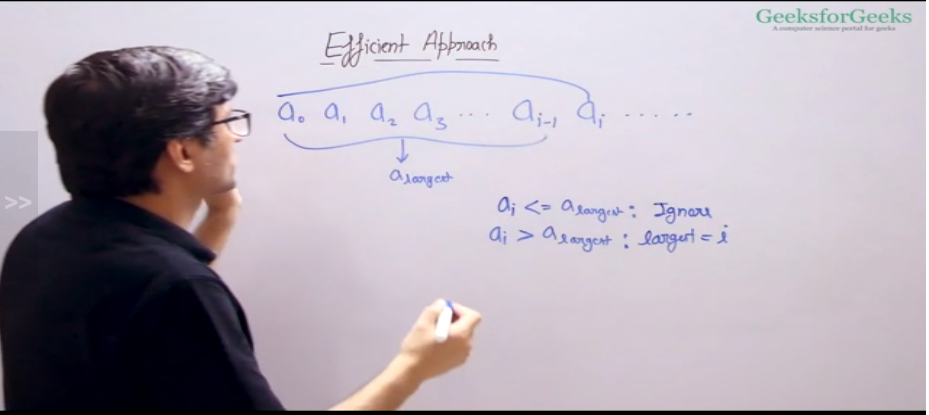 GeeksforGeeks
A computer science portal for geeks
Efficient Approach
a₀ a₁ a₂ a₃ ··· aᵢ₋₁ aᵢ ·····
a largest
aᵢ <= a largest : Ignore
aᵢ > a largest : largest = i
>>